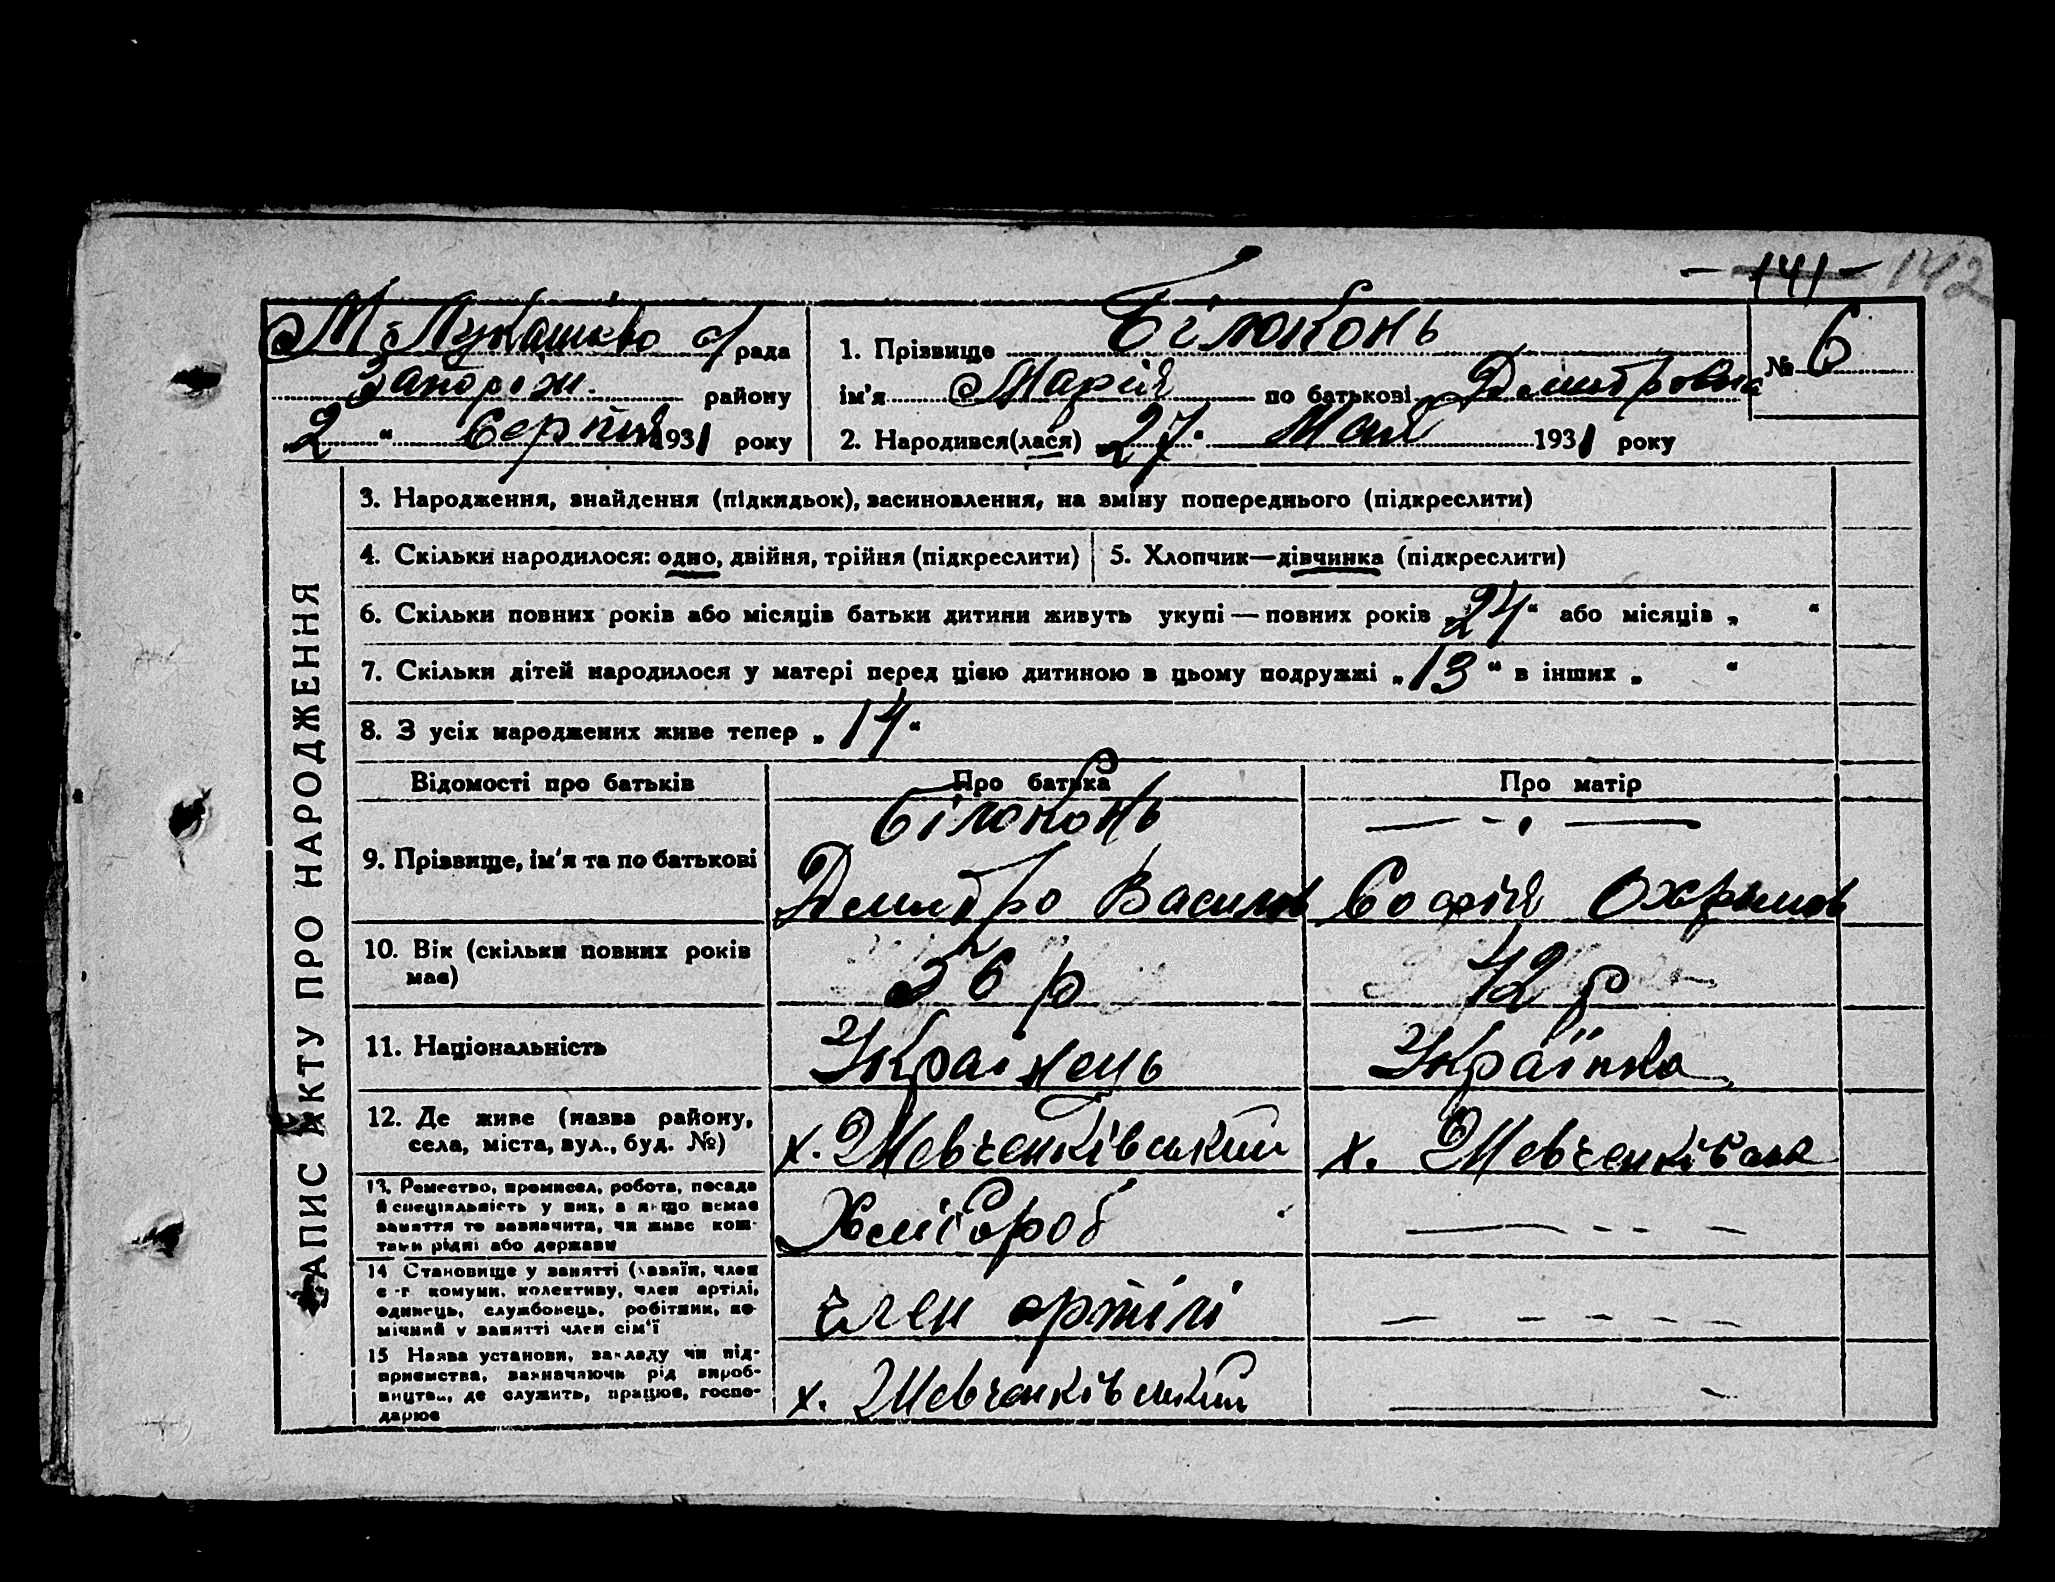 - 141 - 142
М Лукашівс с/рада
Запоріж. району
2 " Серпня 1931 року
1. Прізвище Білоконь
ім'я Марія по батькові Дмитровна
№ 6
2. Народився(лася) 27 " Мая 1931 року
ЗАПИС АКТУ ПРО НАРОДЖЕННЯ
3. Народження, знайдення (підкидьок), засиновлення, на зміну попереднього (підкреслити)
4. Скільки народилося: одно, двійня, трійня (підкреслити) 5. Хлопчик—дівчинка (підкреслити)
6. Скільки повних років або місяців батьки дитини живуть укупі — повних років „24" або місяців „ "
7. Скільки дітей народилося у матері перед цією дитиною в цьому подружжі „13" в інших „ "
8. З усіх народжених живе тепер „14"
Відомості про батьків Про батька Про матір
9. Прізвище, ім'я та по батькові
Білоконь — - . —
Дмитро Васильов Софія Охрымов
10. Вік (скільки повних років
має)
56 р 42 р
11. Національність Украінець Українка
12. Де живе (назва району,
села, міста, вул., буд. №)
х. Шевченківський х. Шевченківськ
13. Ремество, промисел, робота, посада
й спеціяльність у них, а якщо немає
заняття то зазначити, чи живе кош-
тами рідні або держави
Хлібороб — - - -
14 Становище у занятті (хазяїн, член
с.-г комуни, колективу, член артілі,
одинець, службовець, робітник, по-
мічний у занятті член сім'ї
Член артілі — - - - -
15 Назва установи, закладу чи під-
приємства, зазначаючи рід вироб-
ництва, де служить, працює, госпо-
дарює
х. Шевченківський — -